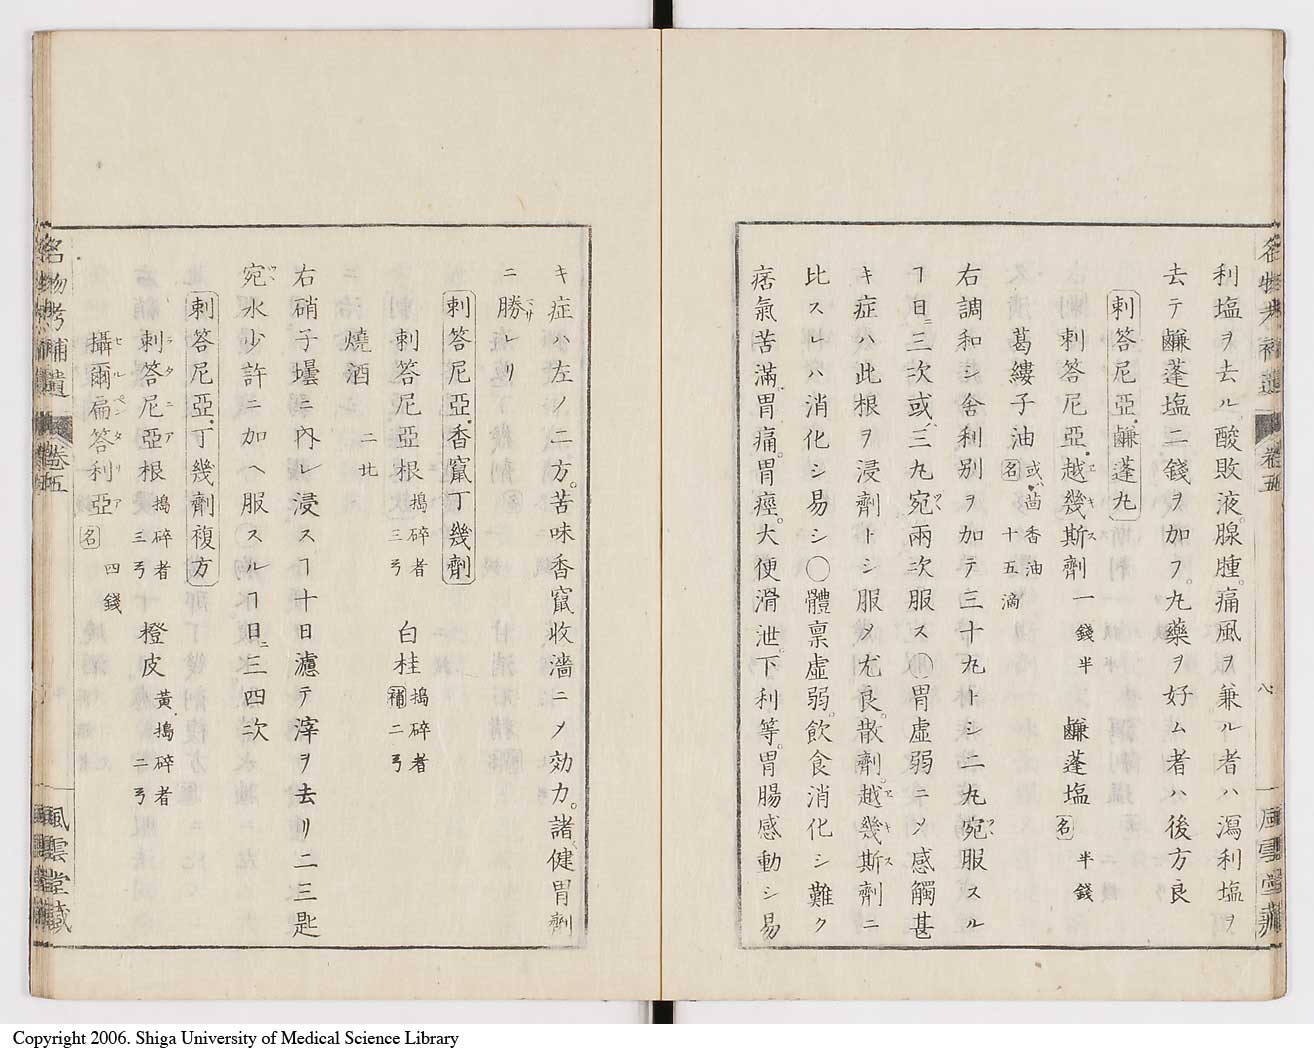 利塩ヲ去ル酸敗液腺腫痛風ヲ兼ル者ハ瀉利塩ヲ
去テ鹻蓬塩二錢ヲ加フ丸藥ヲ好ム者ハ後方良
剌答尼亞鹻蓬丸
剌答尼亞越幾斯劑 一錢半 鹻蓬塩 名 半錢
葛縷子油 名 或茴香油 十五滴
右調和シ舍利別ヲ加テ三十丸トシ二丸宛服スル
ヿ日ニ三次或三丸宛兩次服ス〇胃虛弱ニメ感觸甚
キ症ハ此根ヲ浸劑トシ服メ尤良散劑越幾斯劑ニ
比スレハ消化シ易シ〇體禀虛弱飲食消化シ難ク
痞氣苦滿胃痛胃痙大便滑泄下利等胃腸感動シ易
キ症ハ左ノ二方苦味香竄收濇ニメ効力諸健胃劑
ニ勝レリ
剌答尼亞香竄丁幾劑
剌答尼亞根 搗碎者 三弓 白桂 補 搗碎者 二弓
燒酒 二比
右硝子壜ニ內レ浸スヿ十日濾テ滓ヲ去リ二三匙
宛水少許ニ加ヘ服スルヿ日ニ三四次
剌答尼亞丁幾劑複方
剌答尼亞根 搗碎者 三弓 橙皮 黃搗碎者 二弓
攝爾扁答利亞 名 四錢
名物考補遺 卷五 風雲堂藏
Copyright 2006. Shiga University of Medical Science Library